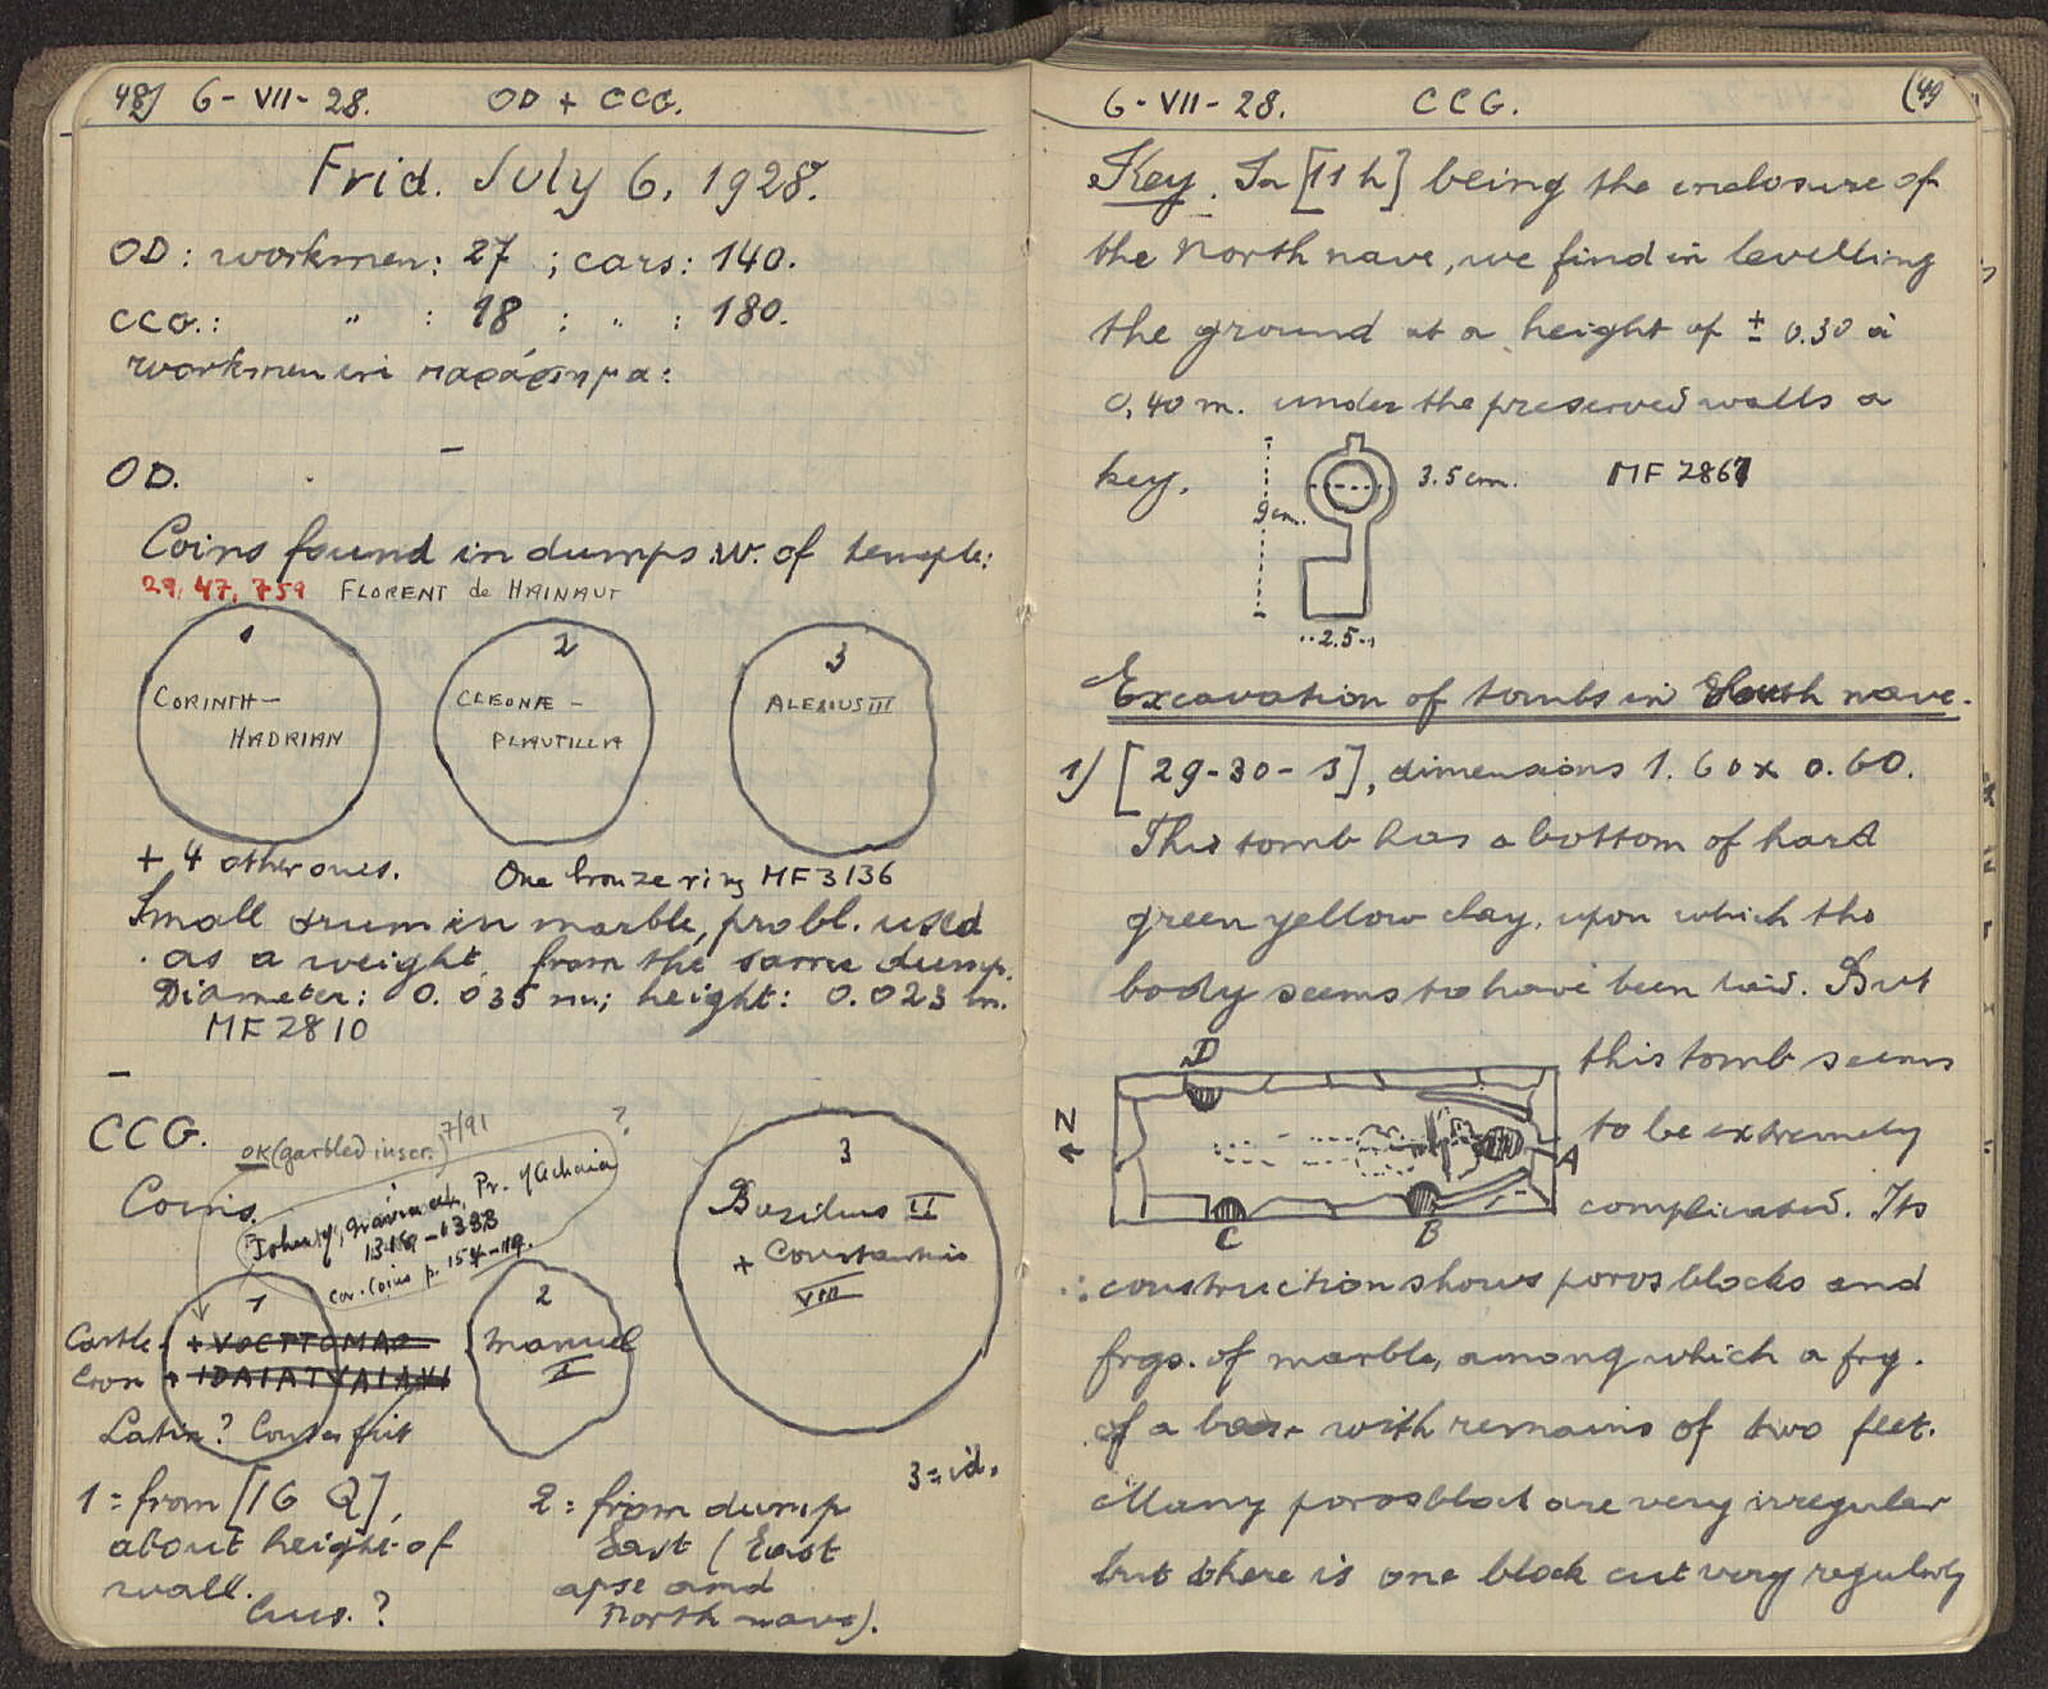 48) 6-VII-28. OD + CCG.
Frid. July 6, 1928.
OD: workmen: 27 ; cars: 140.
CCG.: " : 18 ; " : 180.
workmen in παράρτημα:
OD.
Coins found in dumps W. of temple:
29, 47, 759 FLORENT de HAINAUT
1
CORINTH-
HADRIAN
2
CLEONÆ -
PLAUTILLA
3
ALEXIUS III
+ 4 other ones. One bronze ring MF 3136
Small drum in marble, probl. used
as a weight, from the same dump.
Diameter: 0.035 m.; height: 0.023 m.
MF 2810
CCG.
OK (garbled inscr.) 7/91
?
Coins.
John of Gravina, Pr. of Achaia
Cor. Coins p. 154
1
Castle +VOCTTOMAO
Cross + IDAIATYAIAXI
Latin? Counterfeit
2
Manuel
I
3
Basilius II
+ Constantinus
VIII
1 = from [16 Q],
about height of
wall.
2 = from dump
East (East
apse and
North nave).
3 = id.
6-VII-28. CCG. (49
Key. In [11 h] being the enclosure of
the North nave, we find in levelling
the ground at a height of ± 0.30 à
0,40 m. under the preserved walls a
key. 9 cm. 3.5 cm. MF 2867
..2.5..
Excavation of tombs in South nave.
1) [29-30-J], dimensions 1.60 x 0.60.
This tomb has a bottom of hard
green yellow clay, upon which the
body seems to have been laid. But
this tomb seems
to be extremely
complicated. Its
D
N
A
C
B
construction shows poros blocks and
frgs. of marble, among which a frg.
of a base with remains of two feet.
Many poros block are very irregular
but there is one block cut very regularly